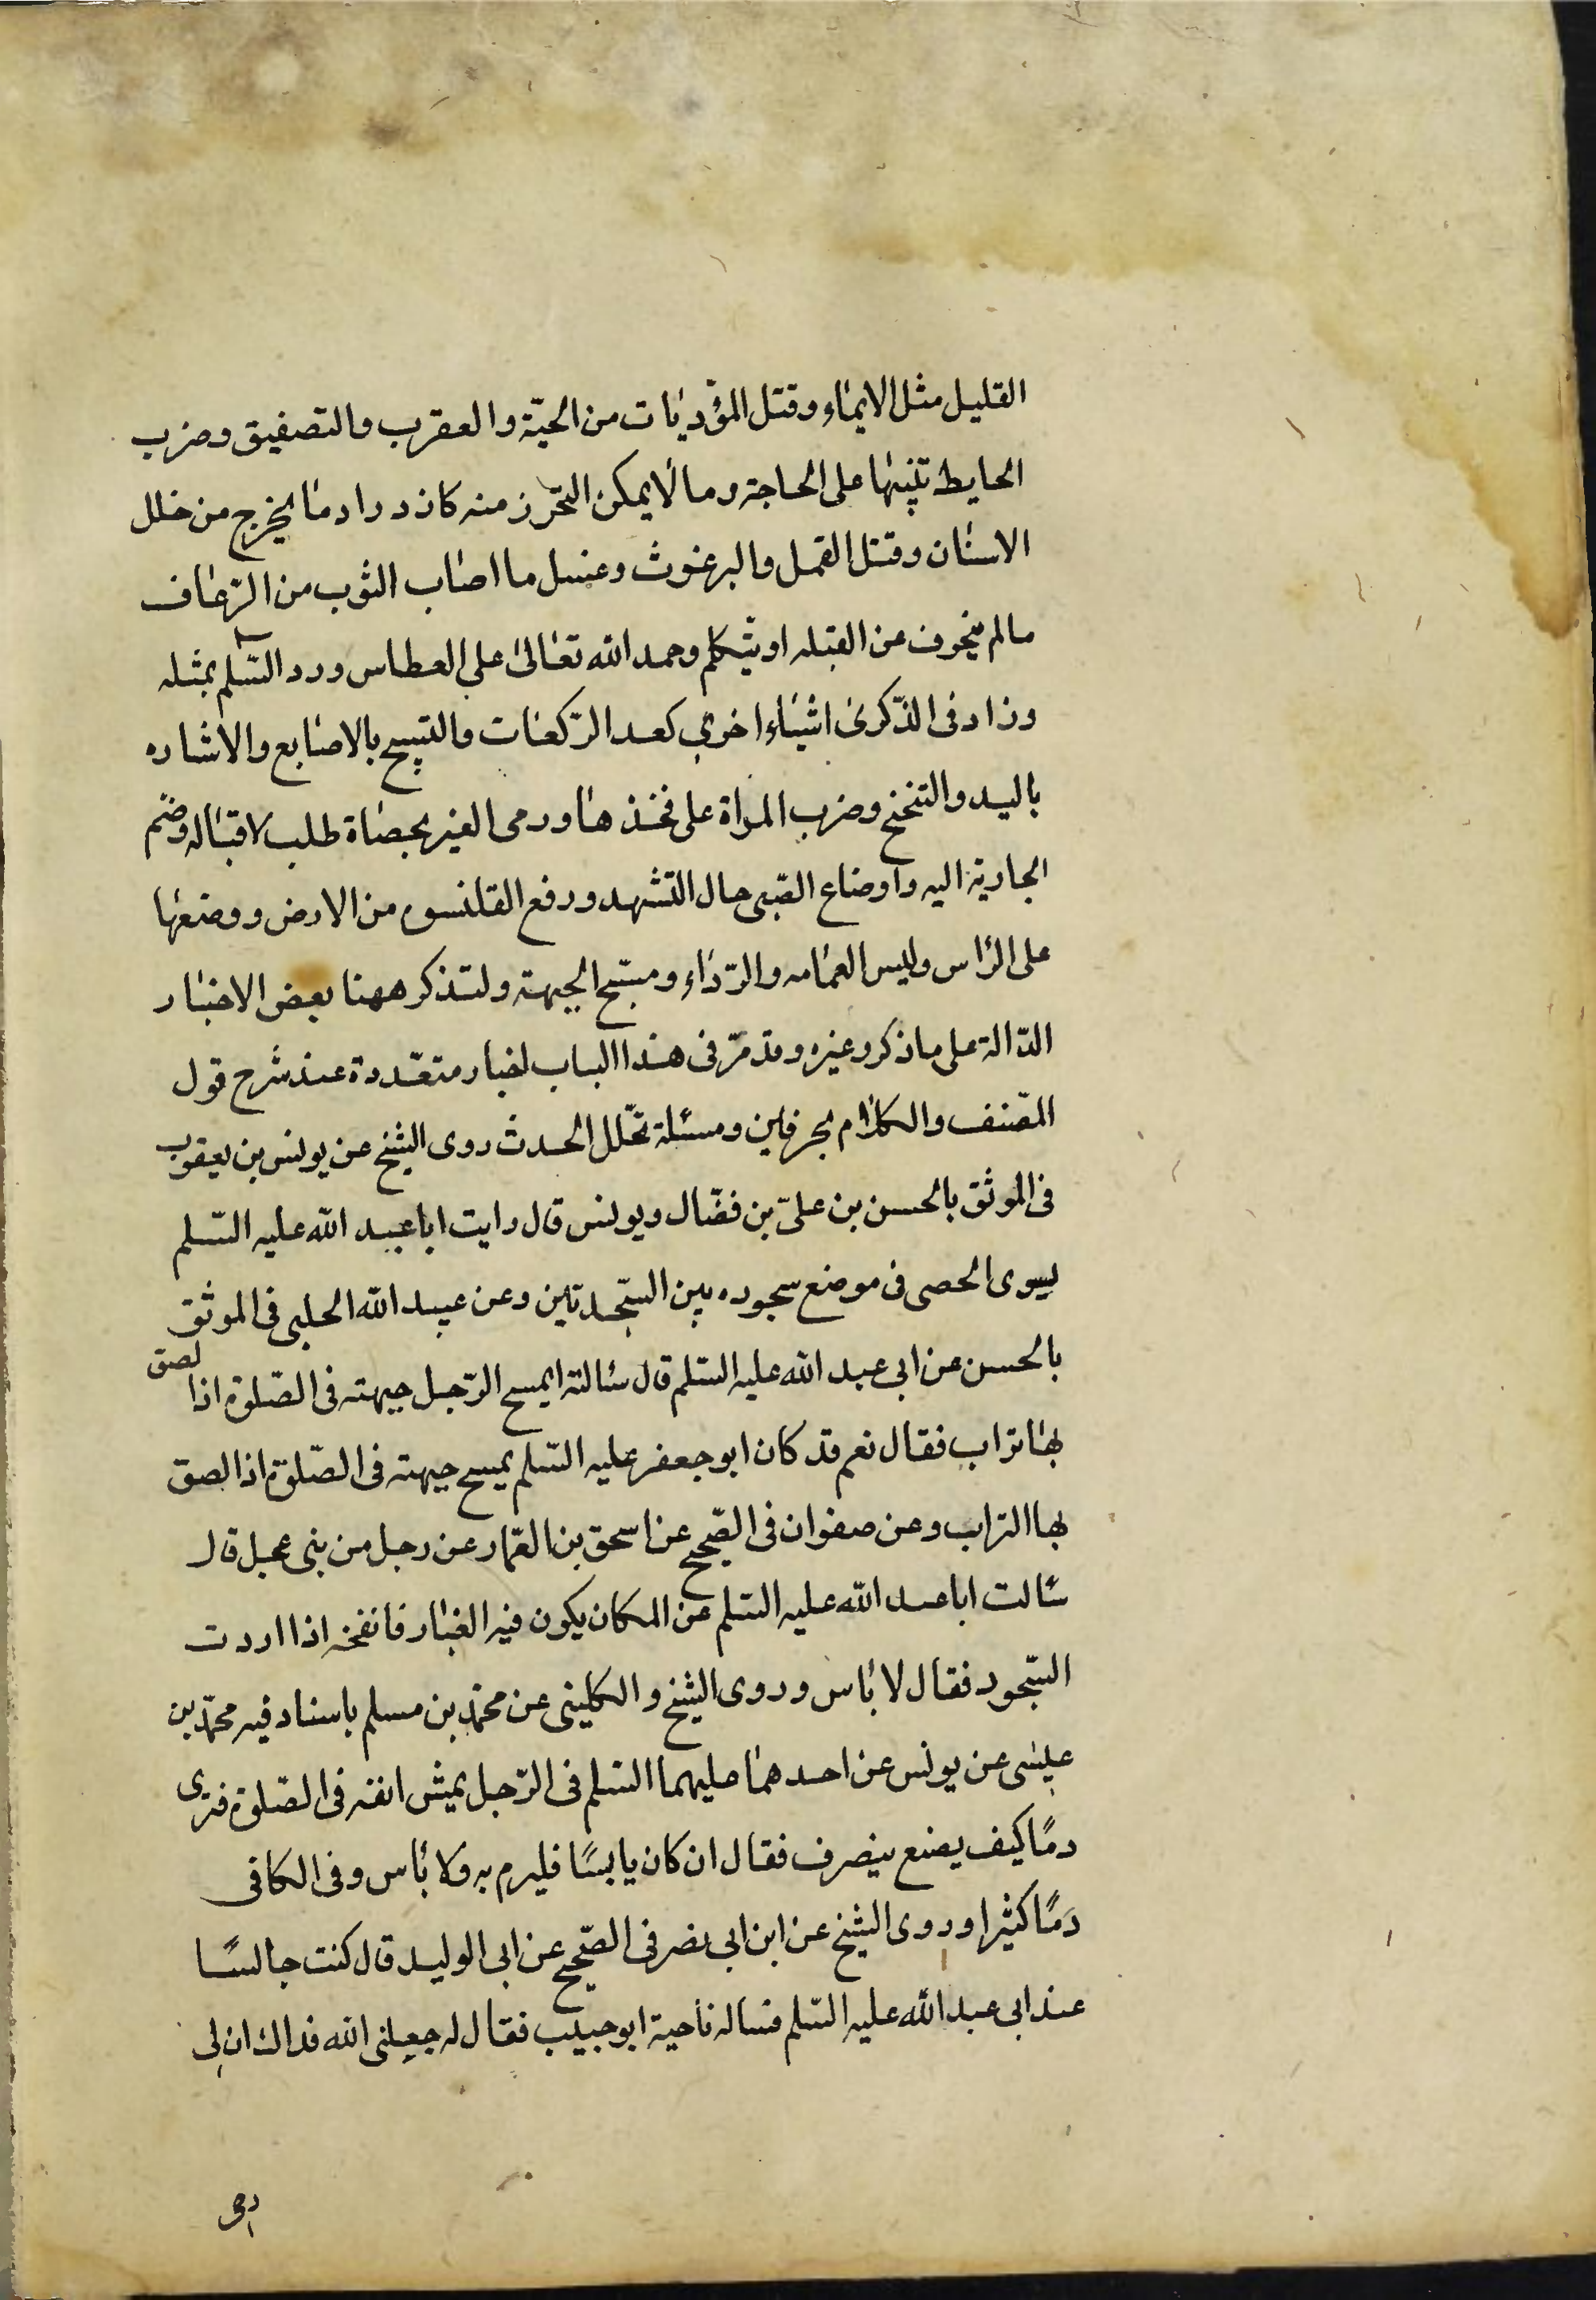 القليل مثل الايماء وقتل المؤذيات من الحيّة والعقرب والتصفيق وضرب
الحايط تنبيها على الحاجة وما لا يمكن التحّرز منه كازدرادما يخرج من خلل
الاسنان وقتل القمل والبرغوث وغسل ما اصاب الثوب من الرّعاف
مالم ينحرف عن القبله او يتكلم وحمد الله تعالى على العطاس ورد السّلم بمثله
وزاد فى الذّكرى اشياء اخرى كعد الرّكعات والتسبيح بالاصابع والاشاره
باليد والتنحنح وضرب المراة على فخذها ورمى الغير بحصاة طلب لاقباله وضّم
الجارية اليه واوضاع الصّبى حال التّشهد ورفع القلنسوه من الارض ووضعها
على الرّاس ولبس العمامه والرّداء ومسّح الجبهة ولنذكر ههنا بعض الاخبار
الدّالة على ما ذكر وغيره وقد مرّ فى هذا الباب اخبار متعّددة عند شرح قول
المصّنف والكلام بحرفين ومسئلة تخّلل الحدث روى الشيخ عن يونس بن يعقوب
فى الموثق بالحسن بن علىّ بن فضّال ويونس قال رايت ابا عبد الله عليه السّلم
يسوى الحصى فى موضع سجوده بين السّجدتين وعن عبيد الله الحلبى فى الموثق
بالحسن عن ابى عبد الله عليه السّلم قال سئالته ايمسح الرّجل جبهته فى الصّلوة اذا لصق
بها تراب فقال نعم قد كان ابو جعفر عليه السّلم يمسح جبهته فى الصّلوة اذا لصق
بها التراب وعن صفوان فى الصّحيح عن اسحق بن العّمار عن رجل من بنى عجل قال
سئالت ابا عبد الله عليه السّلم عن المكان يكون فيه الغبار فانفخه اذا اردت
السّجود فقال لا بأس وروى الشيخ والكلينى عن محمّد بن مسلم باسناد فيه محمّد بن
عيسى عن يونس عن احدهما عليهما السّلم فى الرّجل يمّش انفه فى الصّلوة فترى
دمًا كيف يصنع ينصرف فقال ان كان يابسًا فليرم به ولا بأس وفى الكافى
دَمًا كثيرا وروى الشيخ عن ابن ابى نصر فى الصّحيح عن ابى الوليد قال كنت جالسًا
عند ابى عبد الله عليه السّلم فساله ناحية ابو حبيب فقال له جعلنى الله فداك ان لى